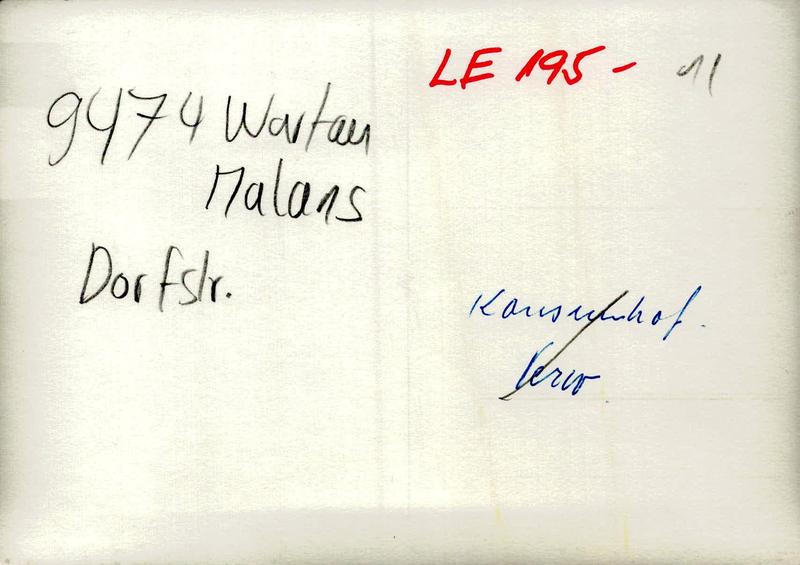 LE 195 - 11
9474 Wartau
Malans
Dorfstr.
Konsumhof.